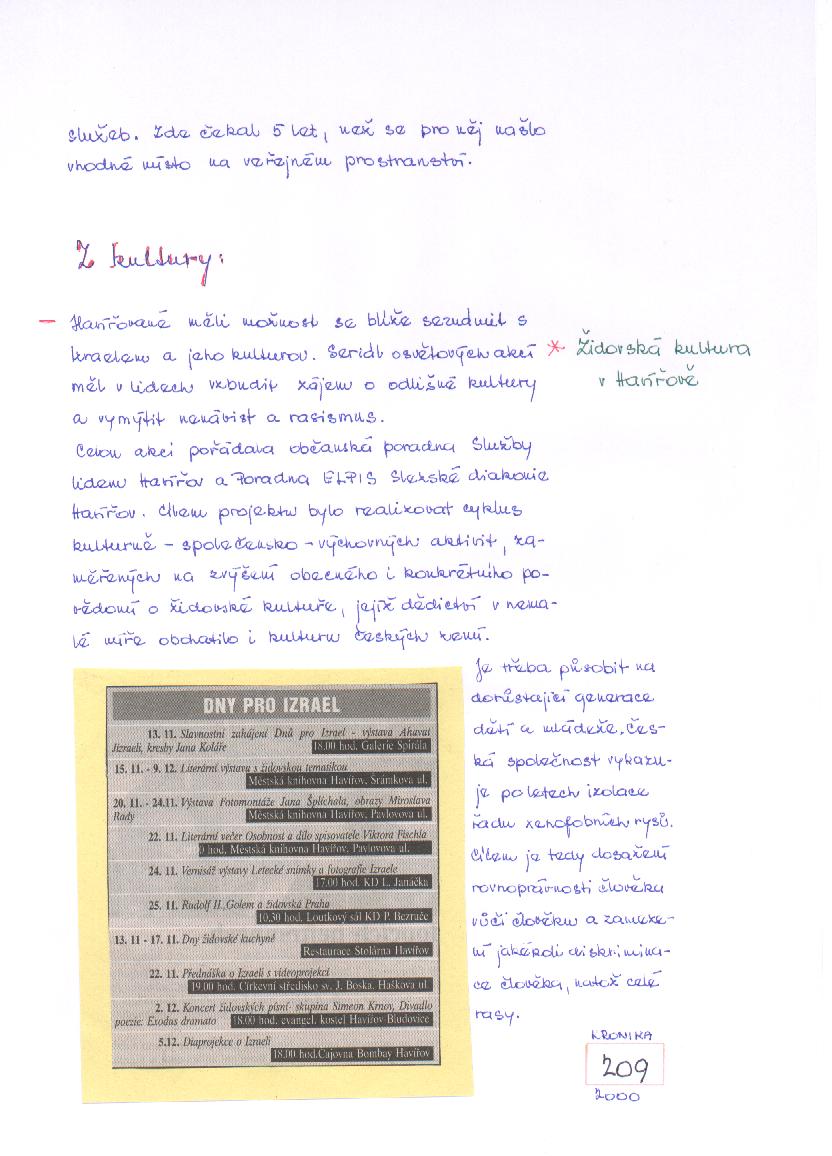 služeb. Zde čekal 5 let, než se pro něj našlo
vhodné místo na veřejném prostranství.
Z kultury:
– Havířované měli možnost se blíže seznámit s
Izraelem a jeho kulturou. Seriál osvětových akcí
měl v lidech vzbudit zájem o odlišné kultury
a vymýtit nenávist a rasismus.
* Židovská kultura
v Havířově
Celou akci pořádala občanská poradna Služby
lidem Havířov a Poradna ELPIS Slezské diakonie
Havířov. Cílem projektu bylo realizovat cyklus
kulturně – společensko – výchovných aktivit, za-
měřených na zvýšení obecného i konkrétního po-
vědomí o židovské kultuře, jejíž dědictví v nema-
lé míře obohatilo i kulturu českých zemí.
Je třeba působit na
dorůstající generace
dětí a mládeže. Čes-
ká společnost vykazu-
je po letech izolace
řadu xenofobních rysů.
Cílem je tedy dosažení
rovnoprávnosti člověka
vůči člověku a zameze-
ní jakékoli diskrimina-
ce člověka, natož celé
rasy.
DNY PRO IZRAEL
13. 11. Slavnostní zahájení Dnů pro Izrael - výstava Ahavat
Jizraeli, kresby Jana Koláře 18.00 hod. Galerie Spirála
15. 11. - 9. 12. Literární výstava s židovskou tematikou
Městská knihovna Havířov, Šrámkova ul.
20. 11. - 24.11. Výstava Fotomontáže Jana Šplíchala, obrazy Miroslava
Rady Městská knihovna Havířov, Pavlovova ul.
22. 11. Literární večer Osobnost a dílo spisovatele Viktora Fischla
0 hod. Městská knihovna Havířov, Pavlovova ul.
24. 11. Vernisáž výstavy Letecké snímky a fotografie Izraele
17.00 hod. KD L. Janáčka
25. 11. Rudolf II., Golem a židovská Praha
10.30 hod. Loutkový sál KD P. Bezruče
13. 11 - 17. 11. Dny židovské kuchyně
Restaurace Stolárna Havířov
22. 11. Přednáška o Izraeli s videoprojekcí
19.00 hod. Církevní středisko sv. J. Boska, Haškova ul.
2. 12. Koncert židovských písní- skupina Simeon Krnov, Divadlo
poezie: Exodus dramato 18.00 hod. evangel. kostel Havířov Bludovice
5.12. Diaprojekce o Izraeli
18.00 hod.Čajovna Bombay Havířov
KRONIKA
209
2000